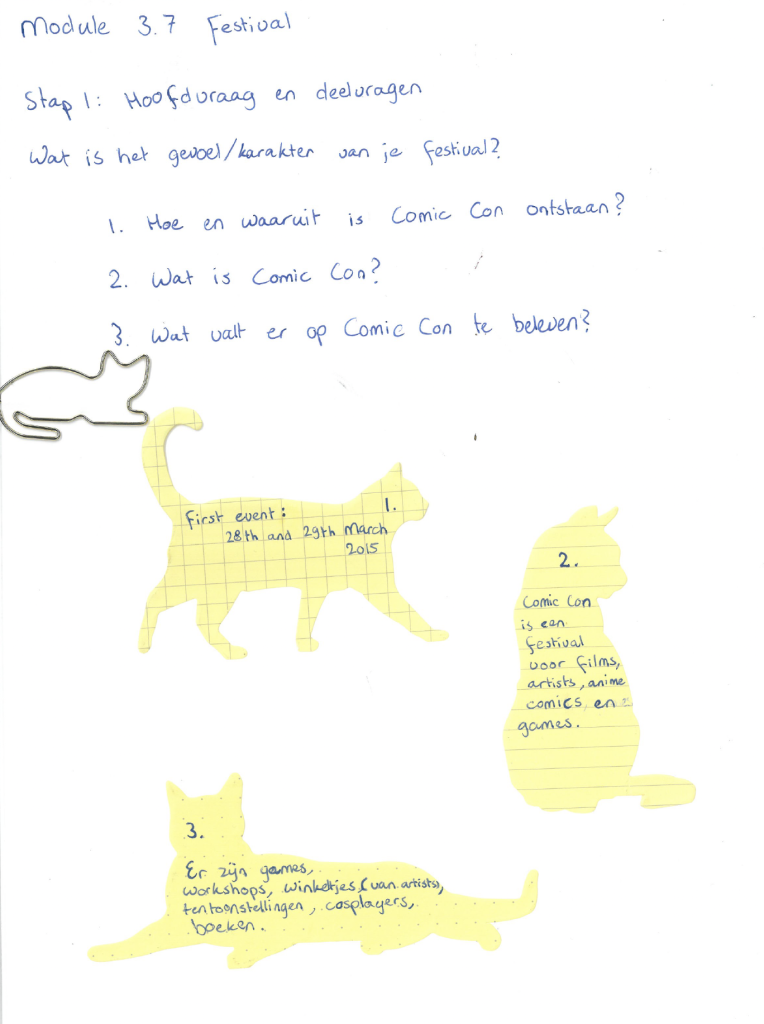 Module 3.7 Festival
Stap 1: Hoofdvraag en deelvragen
Wat is het gevoel/karakter van je festival?
1. Hoe en waaruit is Comic Con ontstaan?
2. Wat is Comic Con?
3. Wat valt er op Comic Con te beleven?
1.
First event:
28th and 29th March
2015
2.
Comic Con
is een
festival
voor films,
artists, anime
comics en
games.
3.
Er zijn games,
workshops, winkeltjes (van artists),
tentoonstellingen, cosplayers,
boeken.